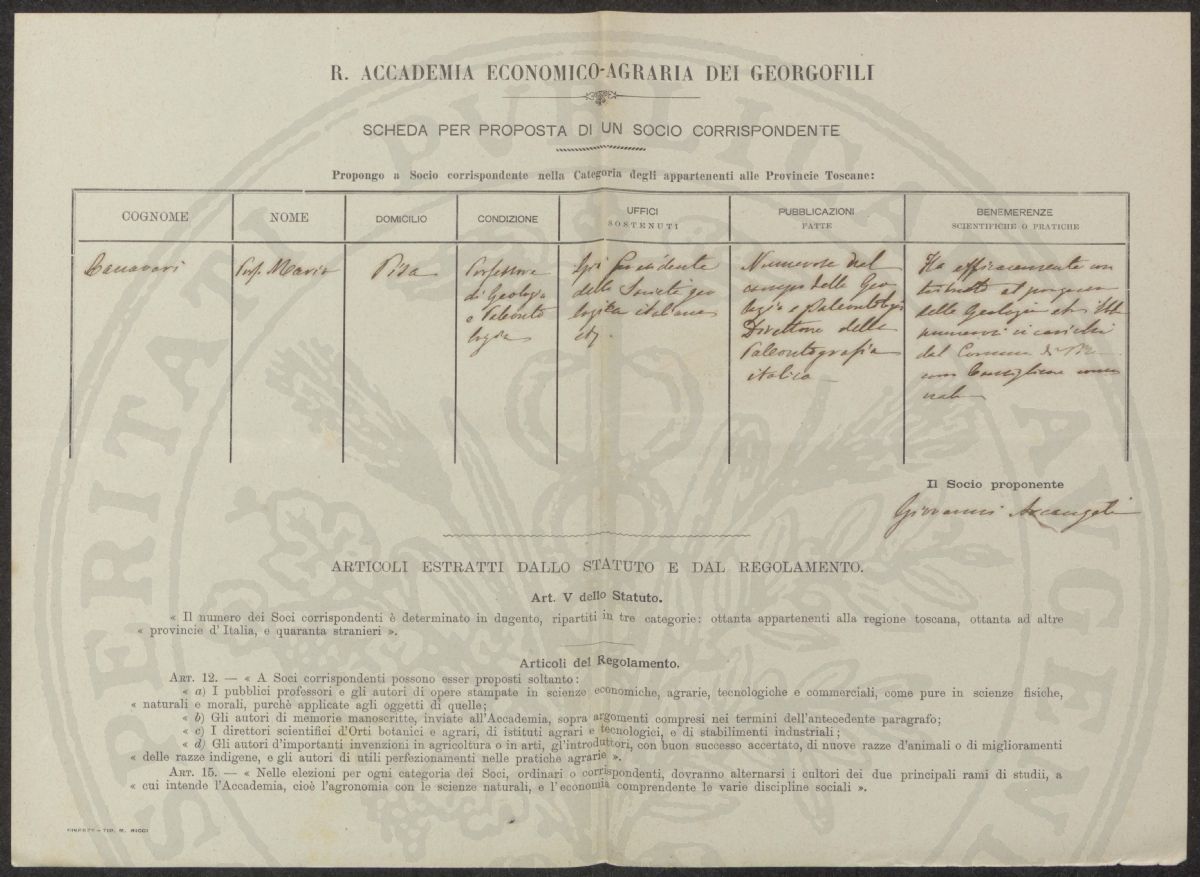 PROSPERITATI PUBLICAE AUGENDAE
R. ACCADEMIA ECONOMICO-AGRARIA DEI GEORGOFILI
SCHEDA PER PROPOSTA DI UN SOCIO CORRISPONDENTE
Propongo a Socio corrispondente nella Categoria degli appartenenti alle Provincie Toscane:
COGNOME
NOME
DOMICILIO
CONDIZIONE
UFFICI
SOSTENUTI
PUBBLICAZIONI
FATTE
BENEMERENZE
SCIENTIFICHE O PRATICHE
Canavari
Prof. Mario
Pisa
Professore
di Geologia
e Paleonto
logia
già Presidente
della Società geo
logica italiana
Numerose nel
campo della Geo
logia e Paleontologia
Direttore della
Paleontografia
italica
Ha efficacemente con
tribuito al progresso
della Geologia ed
numerosi incarichi
dal Comune di
come Consigliere comu
nale
Il Socio proponente
Giovanni Arcangeli
ARTICOLI ESTRATTI DALLO STATUTO E DAL REGOLAMENTO.
Art. V dello Statuto.
« Il numero dei Soci corrispondenti è determinato in dugento, ripartiti in tre categorie: ottanta appartenenti alla regione toscana, ottanta ad altre
« provincie d' Italia, e quaranta stranieri ».
Articoli del Regolamento.
ART. 12. — « A Soci corrispondenti possono esser proposti soltanto:
« a) I pubblici professori e gli autori di opere stampate in scienze economiche, agrarie, tecnologiche e commerciali, come pure in scienze fisiche,
« naturali e morali, purchè applicate agli oggetti di quelle;
« b) Gli autori di memorie manoscritte, inviate all'Accademia, sopra argomenti compresi nei termini dell'antecedente paragrafo;
« c) I direttori scientifici d'Orti botanici e agrari, di istituti agrari e tecnologici, e di stabilimenti industriali;
« d) Gli autori d'importanti invenzioni in agricoltura o in arti, gl'introduttori, con buon successo accertato, di nuove razze d'animali o di miglioramenti
« delle razze indigene, e gli autori di utili perfezionamenti nelle pratiche agrarie ».
ART. 15. — « Nelle elezioni per ogni categoria dei Soci, ordinari o corrispondenti, dovranno alternarsi i cultori dei due principali rami di studii, a
« cui intende l'Accademia, cioè l'agronomia con le scienze naturali, e l'economia comprendente le varie discipline sociali ».
FIRENZE - TIP. M. RICCI